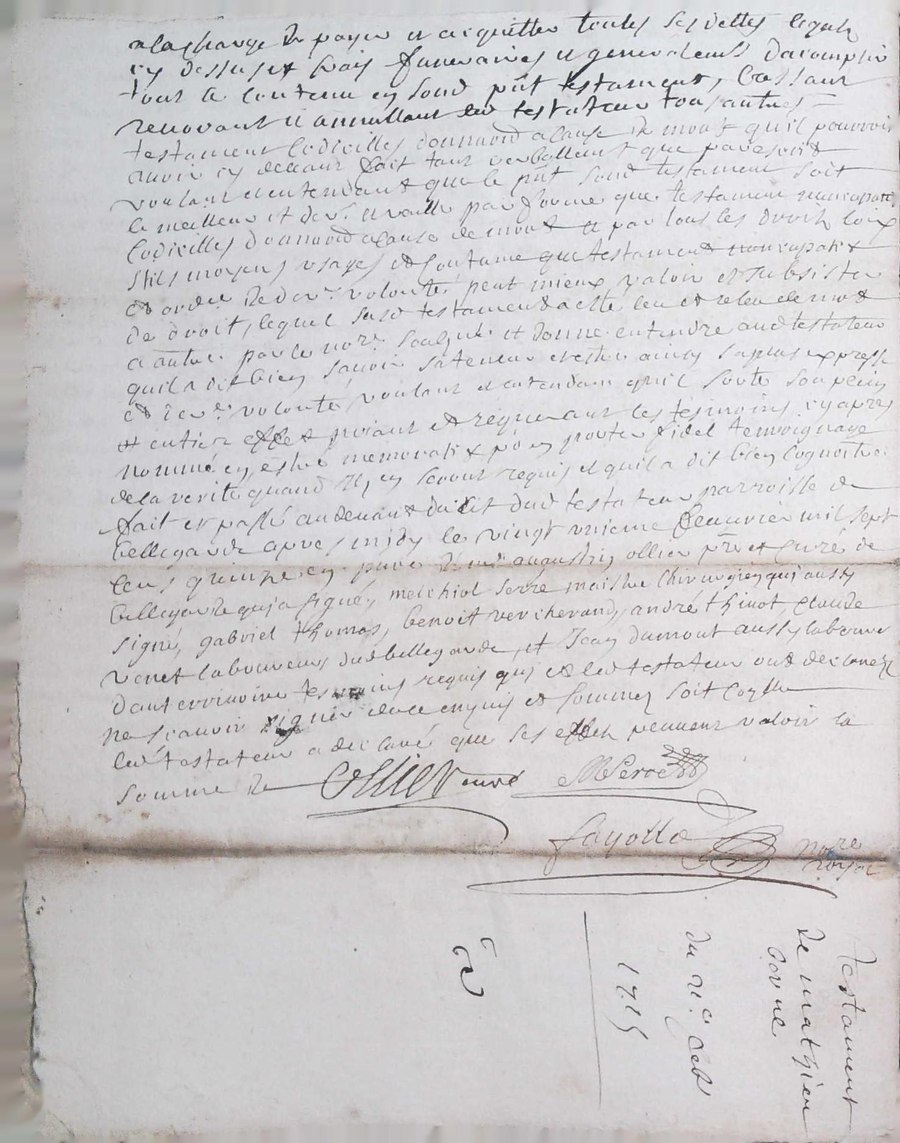 a la charge de payer et acquitter toutes ses dettes legats
cy dessus et frais funeraires et generalemt daccomplir
tout le contenu en sond pnt testament, Cassant
revocant et annullant led testateur tous autres
testament Codicilles donnaõn a cause de mort quil pourroit
avoir cy devant fait tant verballemt que par escrit
voulant et entendant que le pnt sond testament soit
le meilleur et der. et vaille par forme que testament nuncupatif
Codicilles donnaõn a cause de mort et par tous les droits loix
stils moyens usages et Coutume que testament nuncupatif
et ordre. de der. volonté peut mieux valoir et subsister
de droit, lequel susd testament a esté leu et releu de mot
a autre par le nore. soubsigné et donné entendre aud testateur
quil a dit bien savoir sa teneur et estre ainsy sa plus expresse
et der. volonté, voulant et entendant quil sorte son plein
et entier effet priant et requerant les tesmoins cy apres
nommé en estre memoratif pr en porter fidel temoignage
de la verité quand ils en seront requis et quil a dit bien Cognoitre
fait et passé au devant du dud testateur parroisse de
bellegarde apres midy le vingt unieme febvrier mil sept
cens quinze en pnce de augustin ollier pre et curé de
bellegarde qui a signé, melchiol serre maistre Chirurgien qui aussy
signé, gabriel thomas, benoit vercherand, andré thinot, Claude
venet laboureurs dud bellegarde, et Jean dumont aussy laboureur
tesmoins requis qui et led testateur ont declaré
ne scavoir signer de ce enquis et sommez soit
led testateur a declaré que ses effets peuvent valoir la
somme de Ollier curé MSerre
fayolle nore royal
Testament
de mathieu
du 21e feb
1715